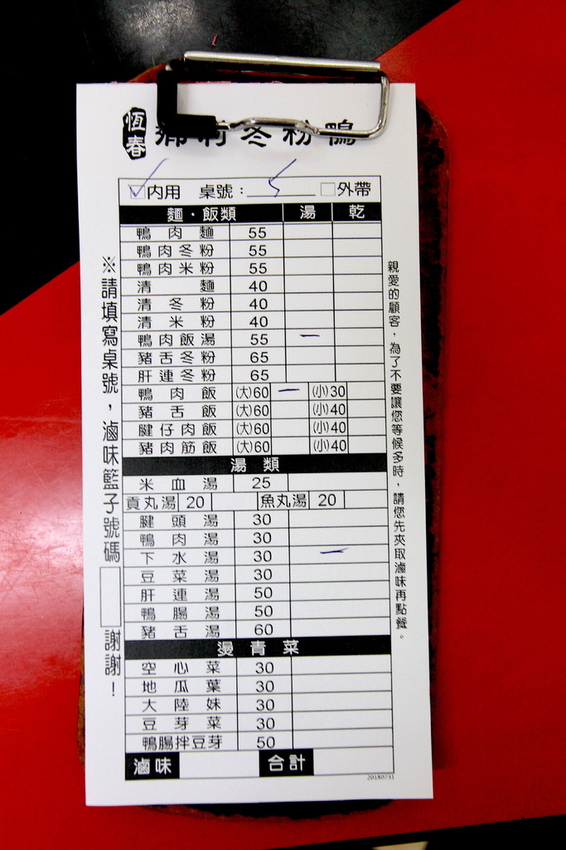 恆春 鄉村冬粉鴨
內用 桌號：5 外帶
麵·飯類 湯 乾
鴨肉麵 55
鴨肉冬粉 55
鴨肉米粉 55
清麵 40
清冬粉 40
清米粉 40
鴨肉飯湯 55 一
豬舌冬粉 65
肝連冬粉 65
鴨肉飯 (大)60 一 (小)30
豬舌飯 (大)60 (小)40
腱仔肉飯 (大)60 (小)40
豬肉筋飯 (大)60 (小)40
湯類
米血湯 25
貢丸湯 20 魚丸湯 20
腱頭湯 30
鴨肉湯 30
下水湯 30 一
豆菜湯 30
肝連湯 50
鴨腸湯 50
豬舌湯 60
燙青菜
空心菜 30
地瓜葉 30
大陸妹 30
豆芽菜 30
鴨腸拌豆芽 50
滷味 合計
20180731
※請填寫桌號，滷味籃子號碼 謝謝！
親愛的顧客，為了不要讓您等候多時，請您先夾取滷味再點餐。